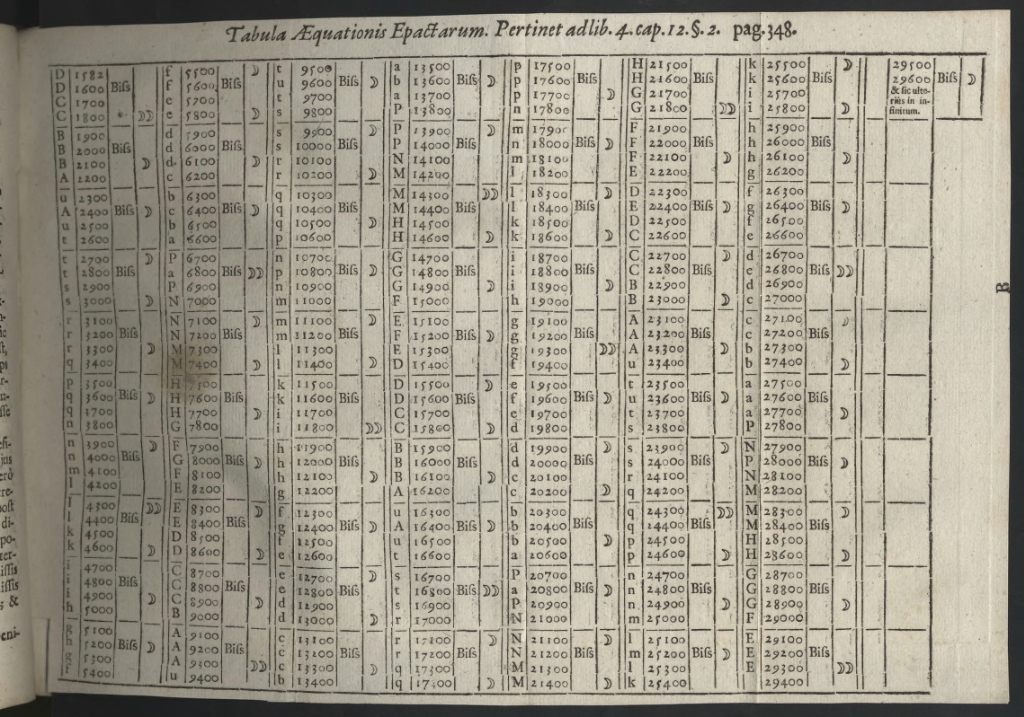 Tabula Æquationis Epactarum. Pertinet ad lib. 4. cap. 12. §. 2. pag. 348.
D 1582
D 1600 Biſſ
C 1700
C 1800 ☽☽
B 1900
B 2000 Biſſ
B 2100 ☽
A 2200
u 2300
A 2400 Biſſ ☽
u 2500
t 2600
t 2700 ☽
t 2800 Biſſ
s 2900
s 3000 ☽
r 3100
r 3200 Biſſ
r 3300 ☽
q 3400
p 3500
q 3600 Biſſ ☽
q 3700
n 3800
n 3900 ☽
n 4000 Biſſ
m 4100
l 4200
l 4300 ☽☽
l 4400 Biſſ
k 4500
k 4600 ☽
i 4700
i 4800 Biſſ
i 4900 ☽
h 5000
g 5100
h 5200 Biſſ ☽
g 5300
f 5400
f 5500 ☽
f 5600 Biſſ
e 5700
e 5800 ☽
d 5900
d 6000 Biſſ
d 6100 ☽
c 6200
b 6300
c 6400 Biſſ ☽
b 6500
a 6600
P 6700
a 6800 Biſſ ☽☽
P 6900
N 7000
N 7100 ☽
N 7200 Biſſ
M 7300
M 7400 ☽
H 7500
H 7600 Biſſ
H 7700 ☽
G 7800
F 7900
G 8000 Biſſ ☽
F 8100
E 8200
E 8300 ☽
E 8400 Biſſ
D 8500
D 8600 ☽
C 8700
C 8800 Biſſ
C 8900 ☽
B 9000
A 9100
A 9200 Biſſ
A 9300 ☽☽
u 9400
t 9500
u 9600 Biſſ ☽
t 9700
s 9800
s 9900 ☽
s 10000 Biſſ
r 10100
r 10200 ☽
q 10300
q 10400 Biſſ
q 10500 ☽
p 10600
n 10700
p 10800 Biſſ ☽
n 10900
m 11000
m 11100 ☽
m 11200 Biſſ
l 11300
l 11400 ☽
k 11500
k 11600 Biſſ
i 11700
i 11800 ☽☽
h 11900
h 12000 Biſſ
h 12100 ☽
g 12200
f 12300
g 12400 Biſſ ☽
f 12500
e 12600
e 12700 ☽
e 12800 Biſſ
d 12900
d 13000 ☽
c 13100
c 13200 Biſſ
c 13300 ☽
b 13400
a 13500
b 13600 Biſſ ☽
a 13700
P 13800
P 13900 ☽
P 14000 Biſſ
N 14100
M 14200
M 14300 ☽☽
M 14400 Biſſ
H 14500
H 14600 ☽
G 14700
G 14800 Biſſ
G 14900 ☽
F 15000
E 15100
F 15200 Biſſ ☽
E 15300
D 15400
D 15500 ☽
D 15600 Biſſ
C 15700
C 15800 ☽
B 15900
B 16000 Biſſ
B 16100 ☽
A 16200
u 16300
A 16400 Biſſ ☽
u 16500
t 16600
s 16700
t 16800 Biſſ ☽☽
s 16900
r 17000
r 17100 ☽
r 17200 Biſſ
q 17300
q 17400 ☽
p 17500
p 17600 Biſſ
p 17700 ☽
n 17800
m 17900
n 18000 Biſſ ☽
m 18100
l 18200
l 18300 ☽
l 18400 Biſſ
k 18500
k 18600 ☽
i 18700
i 18800 Biſſ
i 18900 ☽
h 19000
g 19100
g 19200 Biſſ
g 19300 ☽☽
f 19400
e 19500
f 19600 Biſſ ☽
e 19700
d 19800
d 19900 ☽
d 20000 Biſſ
c 20100
c 20200 ☽
b 20300
b 20400 Biſſ
b 20500 ☽
a 20600
P 20700
a 20800 Biſſ ☽
P 20900
N 21000
N 21100 ☽
N 21200 Biſſ
M 21300
M 21400 ☽
H 21500
H 21600 Biſſ
G 21700
G 21800 ☽☽
F 21900
F 22000 Biſſ
F 22100 ☽
E 22200
D 22300
E 22400 Biſſ ☽
D 22500
C 22600
C 22700 ☽
C 22800 Biſſ
B 22900
B 23000 ☽
A 23100
A 23200 Biſſ
A 23300 ☽
u 23400
t 23500
u 23600 Biſſ ☽
t 23700
s 23800
s 23900 ☽
s 24000 Biſſ
r 24100
q 24200
q 24300 ☽☽
q 14400 Biſſ
p 24500
p 24600 ☽
n 24700
n 24800 Biſſ
n 24900 ☽
m 25000
l 25100
m 25200 Biſſ ☽
l 25300
k 25400
k 25500 ☽
k 25600 Biſſ
i 25700
i 25800 ☽
h 25900
h 26000 Biſſ
h 26100 ☽
g 26200
f 26300
g 26400 Biſſ ☽
f 26500
e 26600
d 26700
e 26800 Biſſ ☽☽
d 26900
c 27000
c 27100 ☽
c 27200 Biſſ
b 27300
b 27400 ☽
a 27500
a 27600 Biſſ
a 27700 ☽
P 27800
N 27900
P 28000 Biſſ ☽
N 28100
M 28200
M 28300 ☽
M 28400 Biſſ
H 28500
H 28600 ☽
G 28700
G 28800 Biſſ
G 28900 ☽
F 29000
E 29100
E 29200 Biſſ
E 29300 ☽☽
29400
29500
29600 Biſſ ☽
& ſic ulte-
riùs in in-
finitum.
B